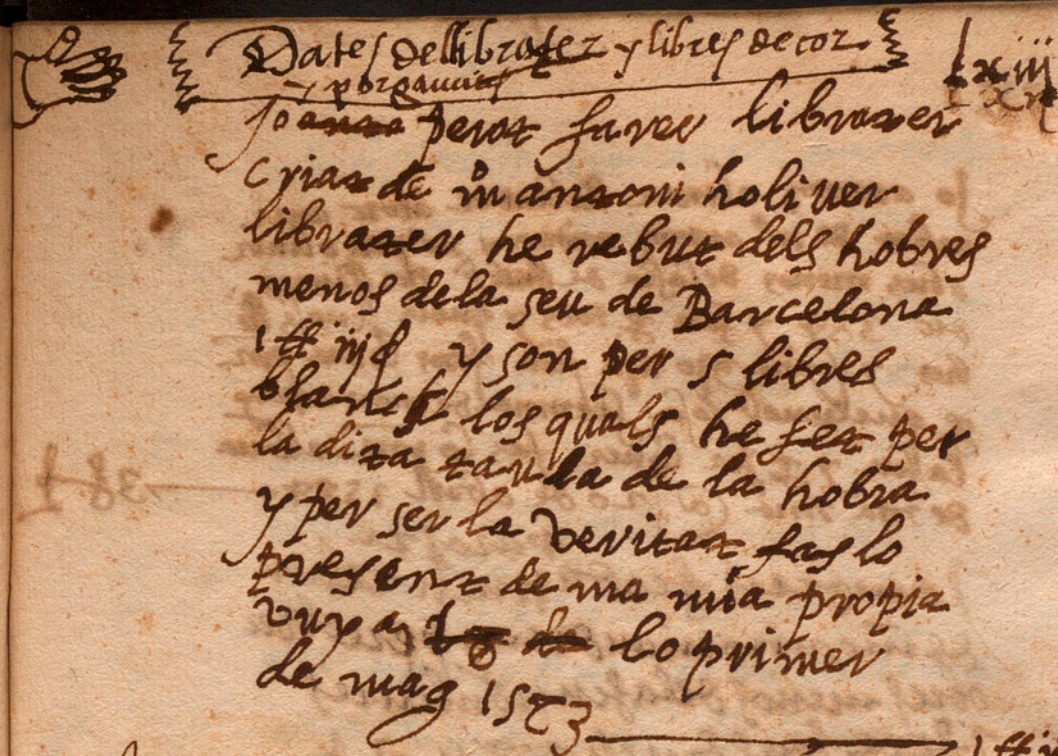 Dates del librater y libres de cor
y porgamins
lxiii
Jo perot faver librater
criat de mº antoni holiver
librater he rebut dels hobres
menos de la seu de Barcelona
1 ₶ iiij ſ y son per 5 libres
blanchs los quals he fet per
la dita taula de la hobra
y per ser la veritat fas lo
present de ma mia propia
vuy a lo primer
de mag 1573